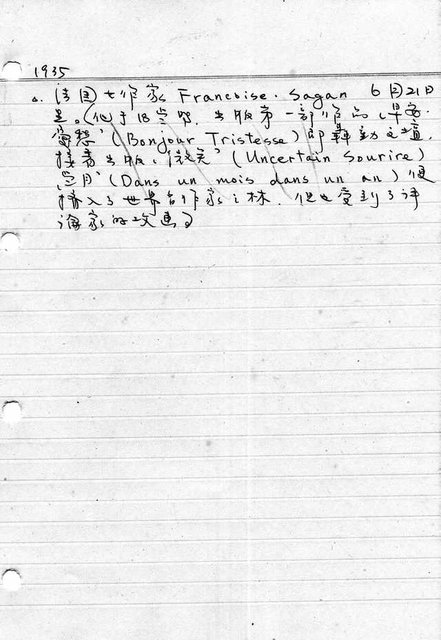 1935
法国女作家 Francoise. Sagan 6月21日
生。(他于18岁时,出版第一部作品‘早安
’(Bonjour Tristesse) 即轰动文坛,
接着出版‘微笑’(Uncertain Sourire)
月’(Dans un mois dans un an) 便
挤入了世界的作家之林,但也受到了评
论家的攻